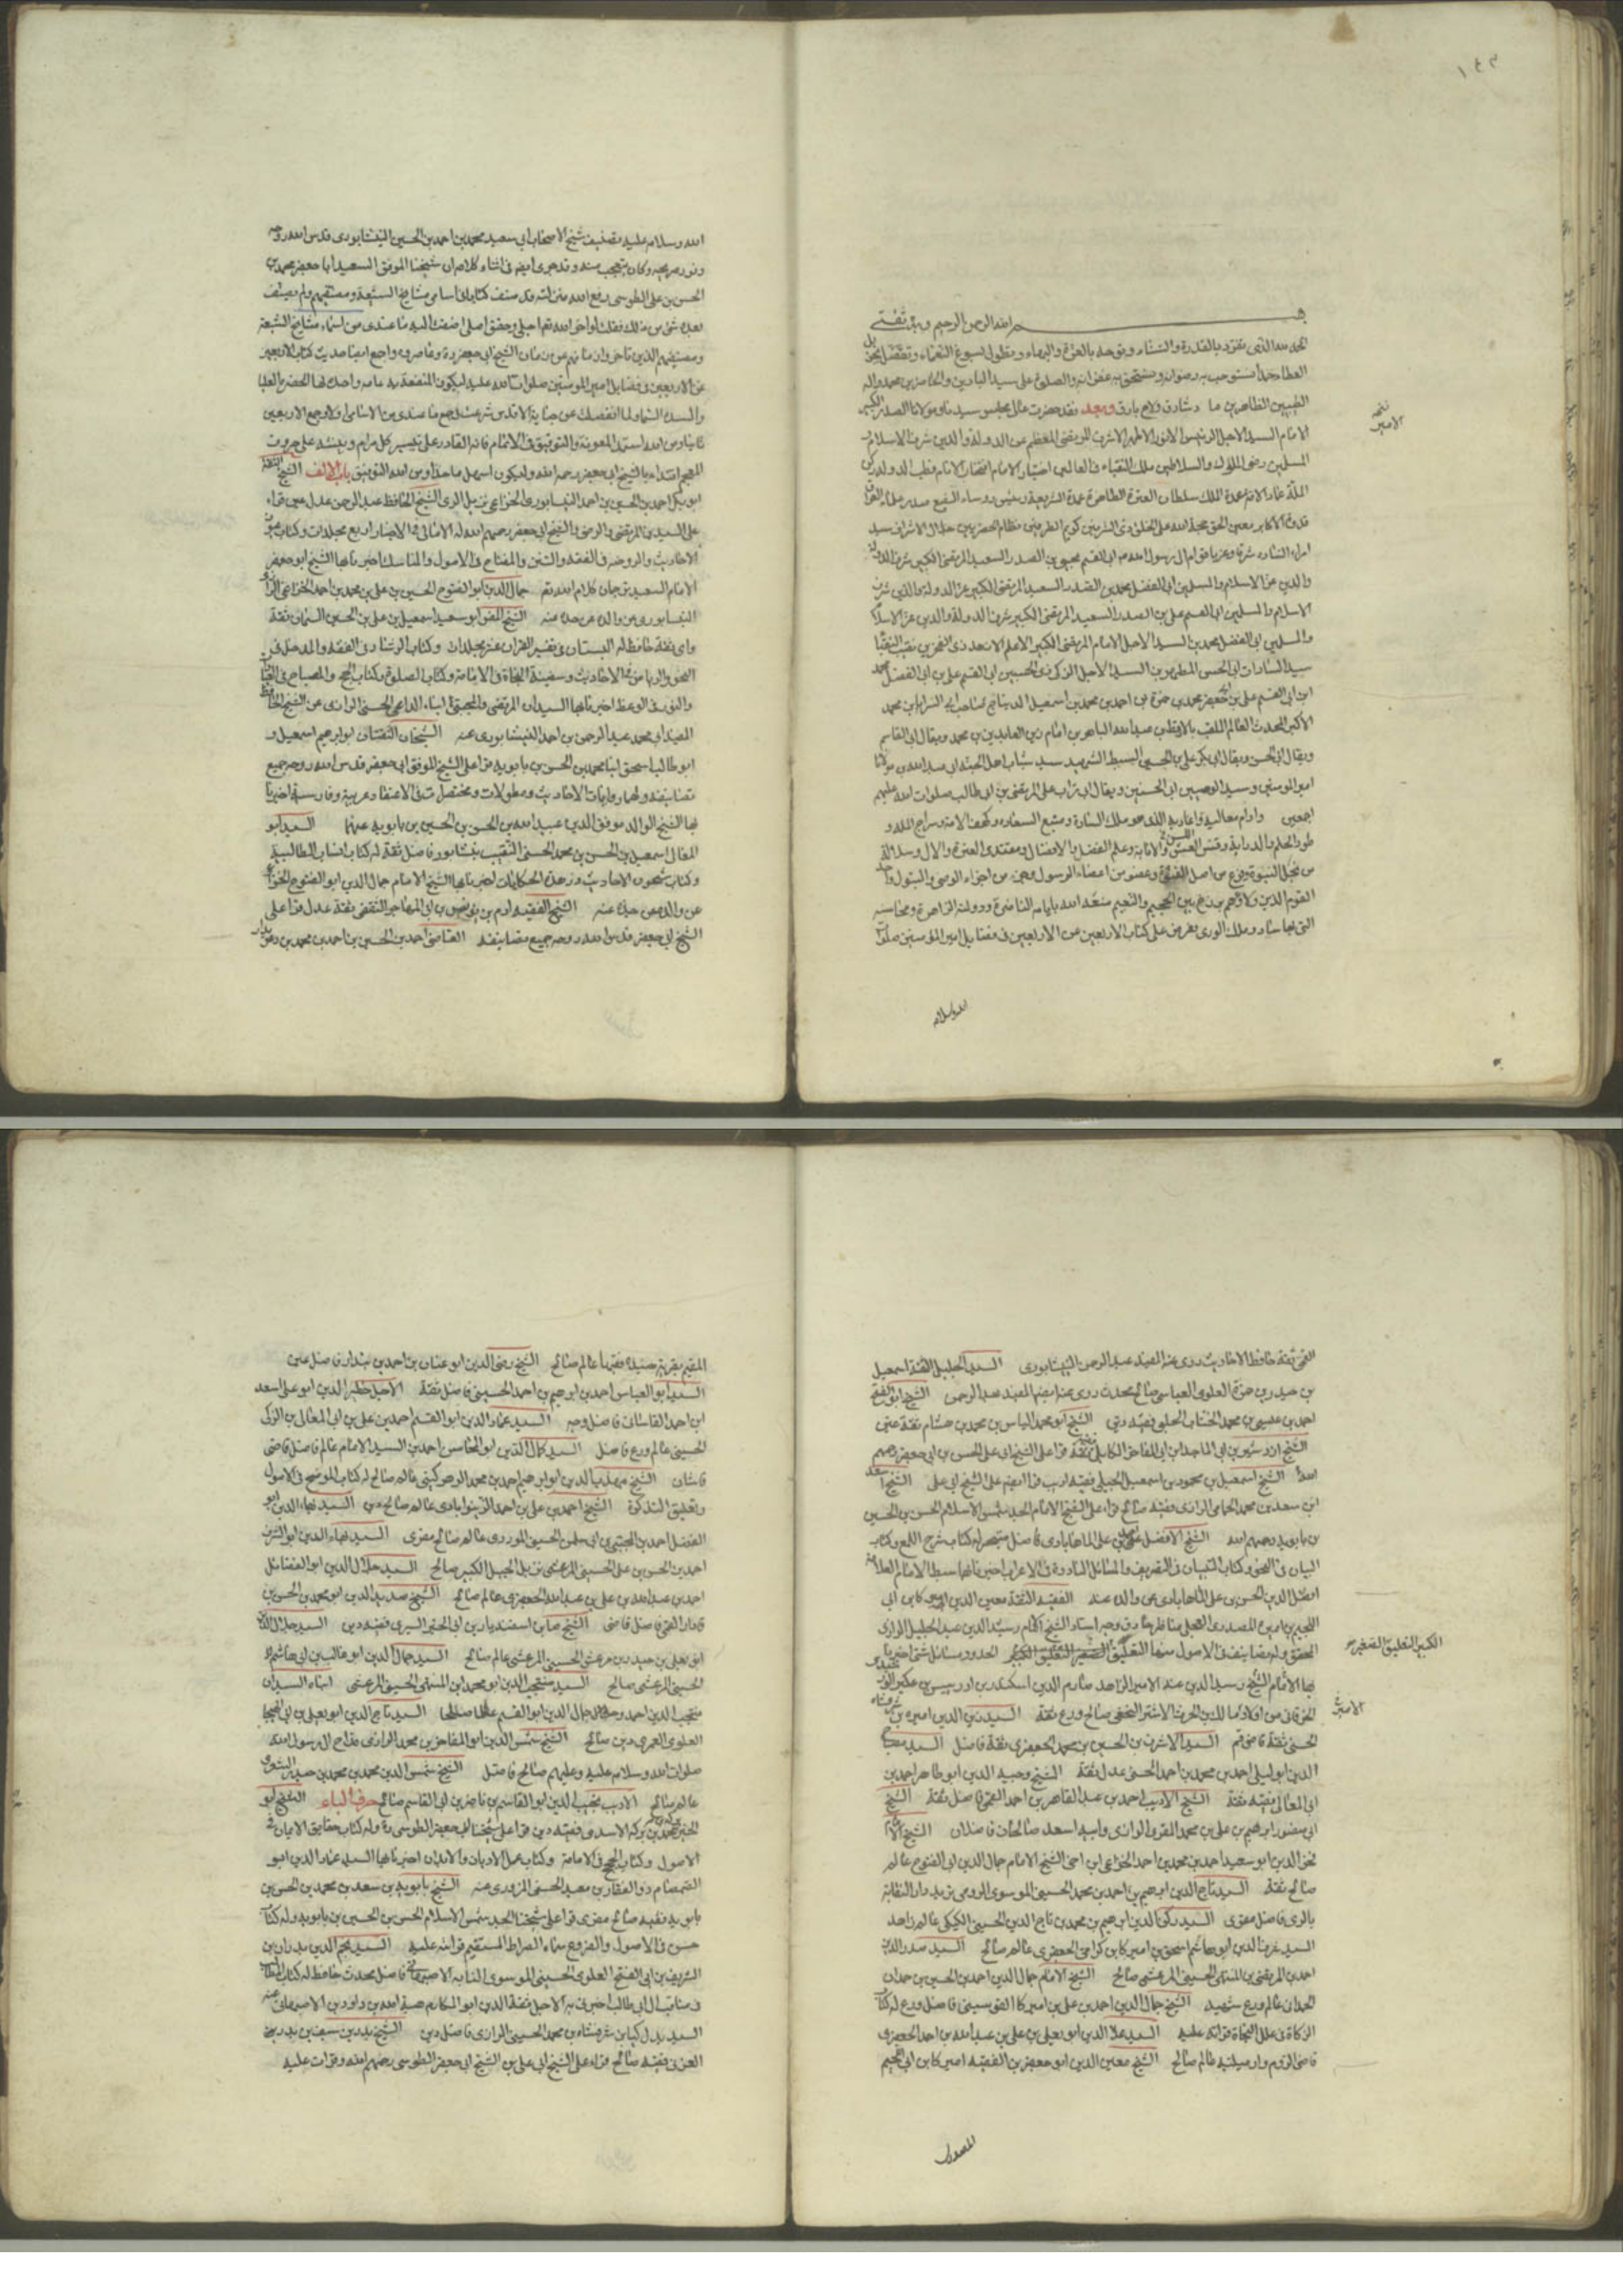 ١٤٣
بسم الله الرحمن الرحيم وبه ثقتي
الحمد لله الذي تفرد بالقدرة والسناء وتوحد بالعزة والبهاء وتطول بسبوغ النعماء وتفضل
العطا حمدا نستوجب به رضوانه ونستحق به غفرانه والصلوة على سيد البادين والحاضرين محمد واله
الطيبين الطاهرين ما ذر شارق ولاح بارق وبعد فقد حضرت عالي مجلس سيدنا ومولانا الصدر الكبير
الامام السيد الاجل الرئيس الانور الاطهر الاشرف المرتضى المعظم عز الدولة والدين شرف الاسلام و
المسلمين رضى الملوك والسلاطين ملك النقباء في العالمين اختيار الامام افتخار الانام قطب الدولة ركن
الملة عماد الامة عمدة الملك سلطان العترة الطاهرة عمدة الشريعة رئيس روساء الشيعة صدر علماء العراق
قدوة الاكابر معين الحق حجة الله على الخلق ذي الشرفين كريم الطرفين نظام الحضرتين جلال الاشراف سيد
امراء السادة شرقا وغربا قوام ال رسول الله ص ابي القسم يحيى بن الصدر السعيد المرتضى الكبير شرف الدولة
والدين عز الاسلام والمسلمين ابي الفضل محمد بن الصدر السعيد المرتضى الكبير عز الدولة والدين شرف
الاسلام والمسلمين ابي القسم علي بن الصدر السعيد المرتضى الكبير شرف الدولة والدين عز الاسلام
والمسلمين ابي الفضل محمد بن السيد الاجل الامام المرتضى الكبير الاعلم الازهد ذي الفخرين نقيب النقباء
سيد السادات ابي الحسن المطهر بن السيد الاجل الزكي ذي الحسبين ابي القسم علي بن ابي الفضل محمد
ابن ابي القسم علي بن ابي جعفر محمد بن حمزة بن احمد بن محمد بن اسمعيل الديباج
الاكبر المحدث العالم الملقب بالارقط بن عبد الله الباهر بن امام زين العابدين بن محمد ويقال ابي القاسم
ويقال ابي الحسن ويقال ابي بكر علي بن الحسين السبط الشهيد سيد شباب اهل الجنة ابي عبد الله بن مولانا
امير المومنين وسيد الوصيين ابي الحسنين ويقال ابي تراب علي المرتضى بن ابي طالب صلوات الله عليهم
اجمعين وادام معاليه الذي هو ملك السادة ومنبع السعادة وكهف الامة وسراج الملة و
طود الحلم والدراية وقس والابانة وعلم الفضل والافضال ومقتدى العترة والال وسلالة
من نجل النبوة وفرع من اصل الفتوة وعضو من اعضاء الرسول وجزء من اجزاء الوصي والبتول
القوم الذين ولاؤهم برزخ بين الجحيم والنعيم متعه الله بايامه الناضرة ودولته الزاهرة ومحاسنه
التي بها ساد وملك الورى فعرض علي كتاب الاربعين عن الاربعين في فضايل امير المؤمنين صلوات
الله وسلامه
الله وسلامه عليه تصنيف شيخ الاصحاب ابي سعيد محمد بن احمد بن الحسين النيشابوري قدس الله روحه
ونور ضريحه وكان يتعجب منه وقد جرى ايضا في اثناء كلامه ان شيخنا الموفق السعيد ابا جعفر محمد بن
الحسن بن علي الطوسي رفع الله منزلته قد صنف كتابا في اسامي مشايخ الشيعة ومصنفيهم ولم يصنف
بعده شيء من ذلك فقلت لو اخر الله تعم اجلي وحقق املي اضفت اليه ما عندي من اسماء مشايخ الشيعة
ومصنفيهم الذين تاخر زمانهم عن زمان الشيخ ابي جعفر ره وعاصروه واجمع ايضا حديث كتاب الاربعين
عن الاربعين في فضايل امير المومنين صلوات الله عليه ليكون المنفعة به عامة
ولما انفصلت عن جنابه الاقدس شرعت في جمع ما عندي من الاسامي اولا وجمع الاربعين
ثانيا ومن الله استمد المعونة والتوفيق في الاتمام فانه القادر على تيسير كل مرام وبنيته على حروف
المعجم اقتداء بالشيخ ابي جعفر رحمه الله وليكون اسهل ماخذا ومن الله التوفيق باب الالف الشيخ الثقة
ابو بكر احمد بن الحسين بن احمد النيسابوري الخزاعي نزيل الري الشيخ الحافظ عبد الرحمن عدل عين قراء
على السيدين المرتضى والرضي والشيخ ابي جعفر رحمهم الله له الامالي في الاخبار اربع مجلدات وكتاب عيون
الاحاديث والروضة في الفقه والسنن والمفتاح في الاصول والمناسك اخبرنا بها الشيخ
الامام السعيد ترجمان كلام الله تعم جمال الدين ابو الفتوح الحسين بن علي بن محمد بن احمد الخزاعي الرازي
النيسابوري عن والده عن جده عنه الشيخ المفسر ابو سعيد اسمعيل بن علي بن الحسين السمان ثقة
واي ثقة حافظ له البستان في تفسير القران عشر مجلدات وكتاب الرشاد في الفقه والمدخل في
النحو والرياض في الاحاديث وسفينة النجاة في الامامة وكتاب الصلوة وكتاب الحج والمصباح في العبادات
والنور في الوعظ اخبرنا بها السيدان المرتضى والمجتبى ابناء الداعي الحسني الرازي عن الشيخ الحافظ
المفيد ابي محمد عبد الرحمن بن احمد النيشابوري عنه الشيخان الثقتان ابو ابرهيم اسمعيل و
ابو طالب اسحق ابنا محمد بن الحسن بن بابويه قراءا على الشيخ الموفق ابي جعفر قدس الله روحه جميع
تصانيفه ولهما روايات الاحاديث ومطولات ومختصرات في الاعتقاد عربية وفارسية اخبرنا
بها الشيخ الوالد موفق الدين عبيد الله بن الحسن بن الحسين بن بابويه عنهما السيد ابو
المعالي اسمعيل بن الحسن بن محمد الحسني النقيب بنيشابور فاضل ثقة له كتاب انساب الطالبية
وكتاب شجون الاحاديث وزهرة الحكايات اخبرنا بها الشيخ الامام جمال الدين ابو الفتوح الخزاعي
عن والده عن جده عنه الشيخ الفقيه ادم بن يونس بن ابي المهاجر النسفي ثقة عدل قرا على
الشيخ ابي جعفر قدس الله روحه جميع تصانيفه القاضي احمد بن الحسين بن احمد بن محمد بن
القمي ثقة حافظ الاحاديث روى عنه المفيد عبد الرحمن النيشابوري السيد الجليل الثقة اسمعيل
بن حيدر بن حمزة العلوي العباسي صالح محدث روى عنه ايضا المفيد عبد الرحمن الشيخ ابو الفتح
احمد بن عيسى بن محمد الخشاب الحلبي فقيه دين الشيخ ابو محمد الياس بن محمد بن هشام ثقة عين
الشيخ اردشير بن ابي الماجدين ابي المفاخر الكابلي فقيه ثقة قرا على الشيخ ابي علي الحسن بن ابي جعفر رحمهم
الله الشيخ اسمعيل بن محمود بن اسمعيل الجبلي فقيه اديب قرا ايضا على الشيخ ابي علي الشيخ اسعد
ابن سعد بن محمد الحمامي الرازي فقيه صالح قراء على الشيخ الامام الجد شمس الاسلام الحسن بن الحسين
بن بابويه رحمهم الله الشيخ الافضل علي الماهابادي فاضل متبحر له كتاب شرح اللمع وكتاب
البيان في النحو وكتاب التبيان في التصريف والمسائل النادرة في الاعراب اخبرنا بها سبط الامام العلامة
افضل الدين الحسن بن علي الماهابادي عن والده عنه الفقيه الثقة معين الدين اميركا بن ابي
اللجيم بن اميرة المصدري العجلي مناظر حاذق وجه استاد الشيخ الامام رشيد الدين عبد الجليل الرازي
المحقق وله تصانيف في الاصول منها التعليق الحدود مسائل شتى اخبرنا
الكبير التعليق الصغير
بها الامام الشيخ رشيد الدين عنه الامير الزاهد صارم الدين اسكندر بن دربيس بن عكبر
الخرقاني من اولاد مالك بن الحرث الاشتر النخعي صالح ورع ثقة السيد زين الدين اميره بن شرفشاه
الحسني ثقة قاضي قم السيد الاشرف بن الحسين بن محمد الجعفري ثقة فاضل السيد
الدين ابو ليلى احمد بن محمد بن احمد الحسني عدل ثقة الشيخ وجيه الدين ابو طاهر احمد بن
ابي المعالي فقيه ثقة الشيخ الاديب احمد بن عبد القاهر بن احمد القمي فاضل ثقة الشيخ
ابي منصور ابرهيم بن علي بن محمد المقري الرازي وابنه اسعد صالحان فاضلان الشيخ
فخر الدين ابو سعيد احمد بن محمد بن احمد الخزاعي ابن اخي الشيخ الامام جمال الدين ابي الفتوح عالم
صالح ثقة السيد تاج الدين ابرهيم بن احمد بن محمد الحسيني الموسوي الرومي نزيل دار النقابة
بالري فاضل مقري السيد زكي الدين ابرهيم بن محمد بن تاج الدين الحسيني الكيكي عالم زاهد
السيد شرف الدين ابو هاشم اسحق بن اميركا بن كرامي الجعفري عالم صالح السيد صدر الدين
احمد بن المرتضى بن المنتهى الحسيني المرعشي صالح الشيخ الامام جمال الدين احمد بن الحسين بن حمدان
الحمداني عالم ورع شهيد الشيخ جمال الدين احمد بن علي بن اميركا القوسيني فاضل ورع له كتاب
الزكاة في علل النحاة قراته عليه السيد علاء الدين ابو يعلى بن علي بن عبد الله بن احمد الجعفري
قاضي الروم وارمينيه عالم صالح الشيخ معين الدين ابو جعفر بن الفقيه اميركا بن ابي اللجيم
المصدري
المقيم بقرية فقيها عالم صالح الشيخ رضي الدين ابو عنان بن احمد بن بندار فاضل عين
السيد ابو العباس احمد بن ابرهيم بن احمد الحسيني فاضل ثقة الاجل ظهير الدين ابو علي اسعد
ابن احمد القاساني فاضل وجه السيد عماد الدين ابو القسم احمد بن علي بن ابي المعالي بن الزكي
الحسيني عالم ورع فاضل السيد كمال الدين ابو المحاسن احمد بن السيد الامام عالم فاضل قاضي
قاشان الشيخ مهذب الدين ابو ابرهيم احمد بن محمد الوهركيني عالم صالح له كتاب الموضح في الاصول
وتعليق التذكرة الشيخ احمد بن علي بن احمد الزينوابادي عالم صالح دين السيد بهاء الدين ابو
الفضل احمد بن المجتبى بن ابي سلمن الحسيني الموردي عالم صالح مقري السيد بهاء الدين ابو الشرف
احمد بن الحسن بن علي الحسيني المرعشي نزيل الجبل الكبير صالح السيد جلال الدين ابو الفضائل
احمد بن عبد الله بن علي بن عبد الله الجعفري عالم صالح الشيخ سديد الدين ابو محمد بن الحسن بن
القمي فاضل قاضي الشيخ صاين اسفنديار بن ابي الخير السيري فقيه دين السيد جلال الدين
ابو يعلى بن حيدر بن مرعش الحسيني المرعشي عالم صالح السيد جمال الدين ابو غالب بن ابي هاشم
الحسيني المرعشي صالح السيد منتجب الدين ابو محمد بن المنتهى الحسيني المرعشي ابناه السيدان
منتجب الدين احمد وجمال الدين ابو القسم عالمان صالحان السيد تاج الدين ابو يعلى بن ابي الهيجا
العلوي العمري دين صالح الشيخ شمس الدين ابو المفاخر بن محمد الرازي مداح ال رسول الله
صلوات الله وسلامه عليه وعليهم صالح فاضل الشيخ شمس الدين محمد بن محمد بن حيدر
عالم صالح الاديب نجيب الدين ابو القاسم بن ناصر بن ابي القاسم صالح حرف الباء الشيخ ابو
الخير بركة بن محمد بن بركة الاسدي فقيه دين قرا على شيخنا ابي جعفر الطوسي ره وله كتاب حقايق الايمان في
الاصول وكتاب الحجج في الامامة وكتاب عمل الاديان والابدان اخبرنا بها السيد عماد الدين ابو
الصمصام ذو الفقار بن معبد الحسني المروزي عنه الشيخ بابويه بن سعد بن محمد بن الحسن بن
بابويه فقيه صالح مقري قرا على شيخنا الجد شمس الاسلام الحسن بن الحسين بن بابويه وله كتاب
حسن في الاصول والفروع سماه الصراط المستقيم قراته عليه السيد نجم الدين بدران بن
الشريف بن ابي الفتح العلوي الحسيني الموسوي النسابه الاصبهاني فاضل محدث حافظ له كتاب المطالب
في مناقب ال ابي طالب اخبرني به الاجل ثقة الدين ابو المكارم هبة الله بن داود بن الاصبهاني عنه
السيد بدل كيا بن شرفشاه بن محمد الحسيني الرازي فاضل دين الشيخ بدر بن سيف بن بدر
العربي فقيه صالح قراء على الشيخ ابي علي بن الشيخ ابي جعفر الطوسي رحمهم الله وقرات عليه